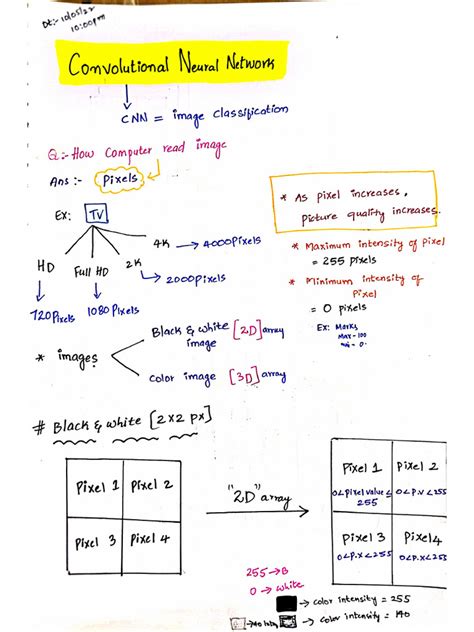 Dt:- 10/05/22
10:00pm
Convolutional Neural Network
CNN = image classification
Q:- How Computer read image
Ans :- Pixels
Ex: TV
* As pixel increases,
picture quality increases.
4K → 4000 Pixels
HD Full HD 2K
2000 pixels
720 Pixels 1080 Pixels
* Maximum intensity of Pixel
= 255 pixels
* Minimum intensity of
Pixel
= 0 pixels
Ex: Marks
Max - 100
min - 0.
* images
Black & white [2D] array
image
Color image [3D] array
# Black & white [2x2 px]
Pixel 1 Pixel 2
Pixel 3 Pixel 4
"2D" array
Pixel 1 Pixel 2
0<Pixel value ≤ 0<P.V<255
255
Pixel 3 Pixel 4
0<P.x<255 0<P.x<255
255 → B
0 → white
→ color intensity = 255
→ color intensity = 140